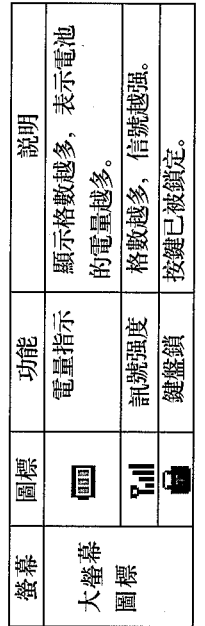 螢幕 圖標 功能 説明
大螢幕
圖標
電量指示 顯示格數越多，表示電池
的電量越多。
訊號强度 格數越多，信號越强。
鍵盤鎖 按鍵已被鎖定。